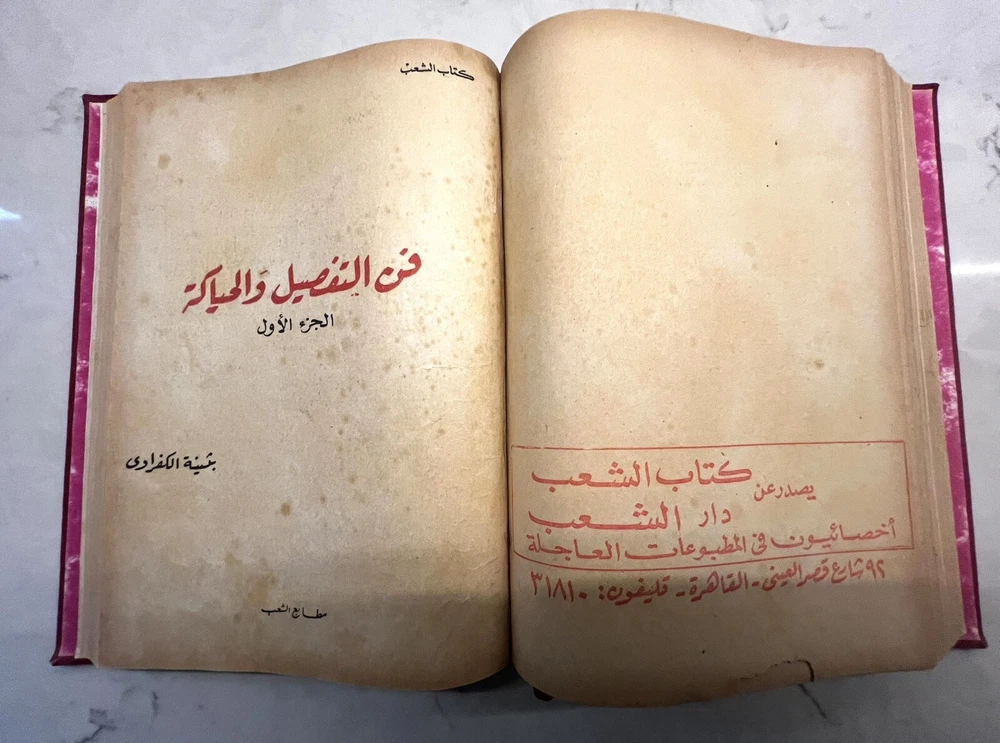 كتاب الشعب
يصدر عن
دار الشعب
أخصائيون فى المطبوعات العاجلة
٩٢ شارع قصر العينى - القاهرة - تليفون: ٣١٨١٠
كتاب الشعب
فن التفصيل وَالحياكة
الجزء الأول
بثينة الكفراوى
مطابع الشعب